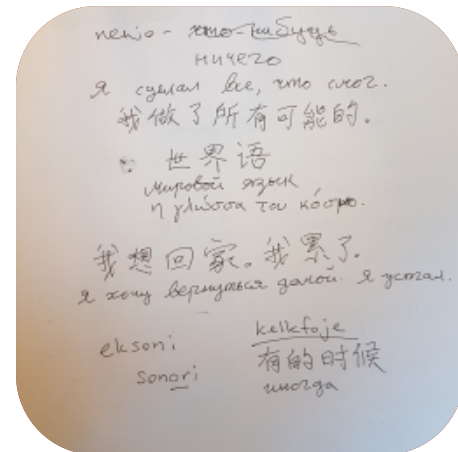 nenio - что-нибудь
ничего
я сделал все, что смог.
我做了所有可能的。
世界语
мировой язык
η γλώσσα του κόσμο.
我想回家。我累了.
я хочу вернуться домой. я устал.
eksoni
sonori
kelkfoje
有的时候
иногда